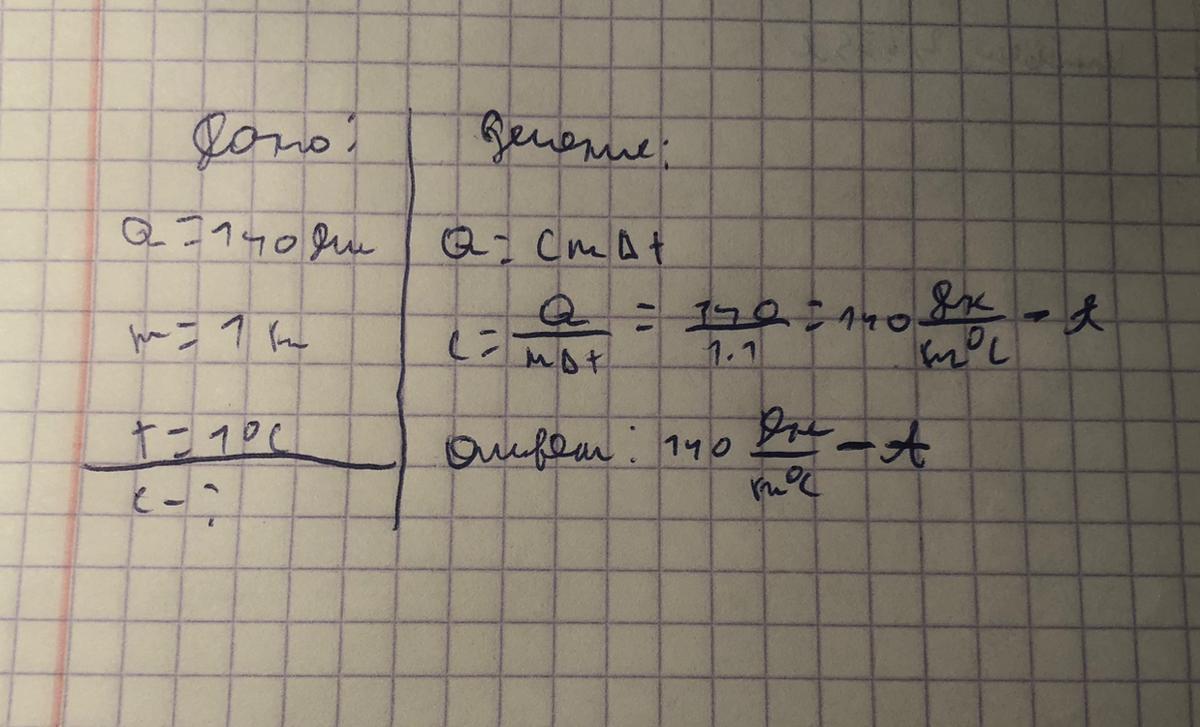 Дано:
Q = 140 Дж
m = 1 кг
t = 1°C
c - ?
Решение:
Q = cmΔt
c = Q/mΔt = 140/1·1 = 140 Дж/кг°C - А
Ответ: 140 Дж/кг°C - А